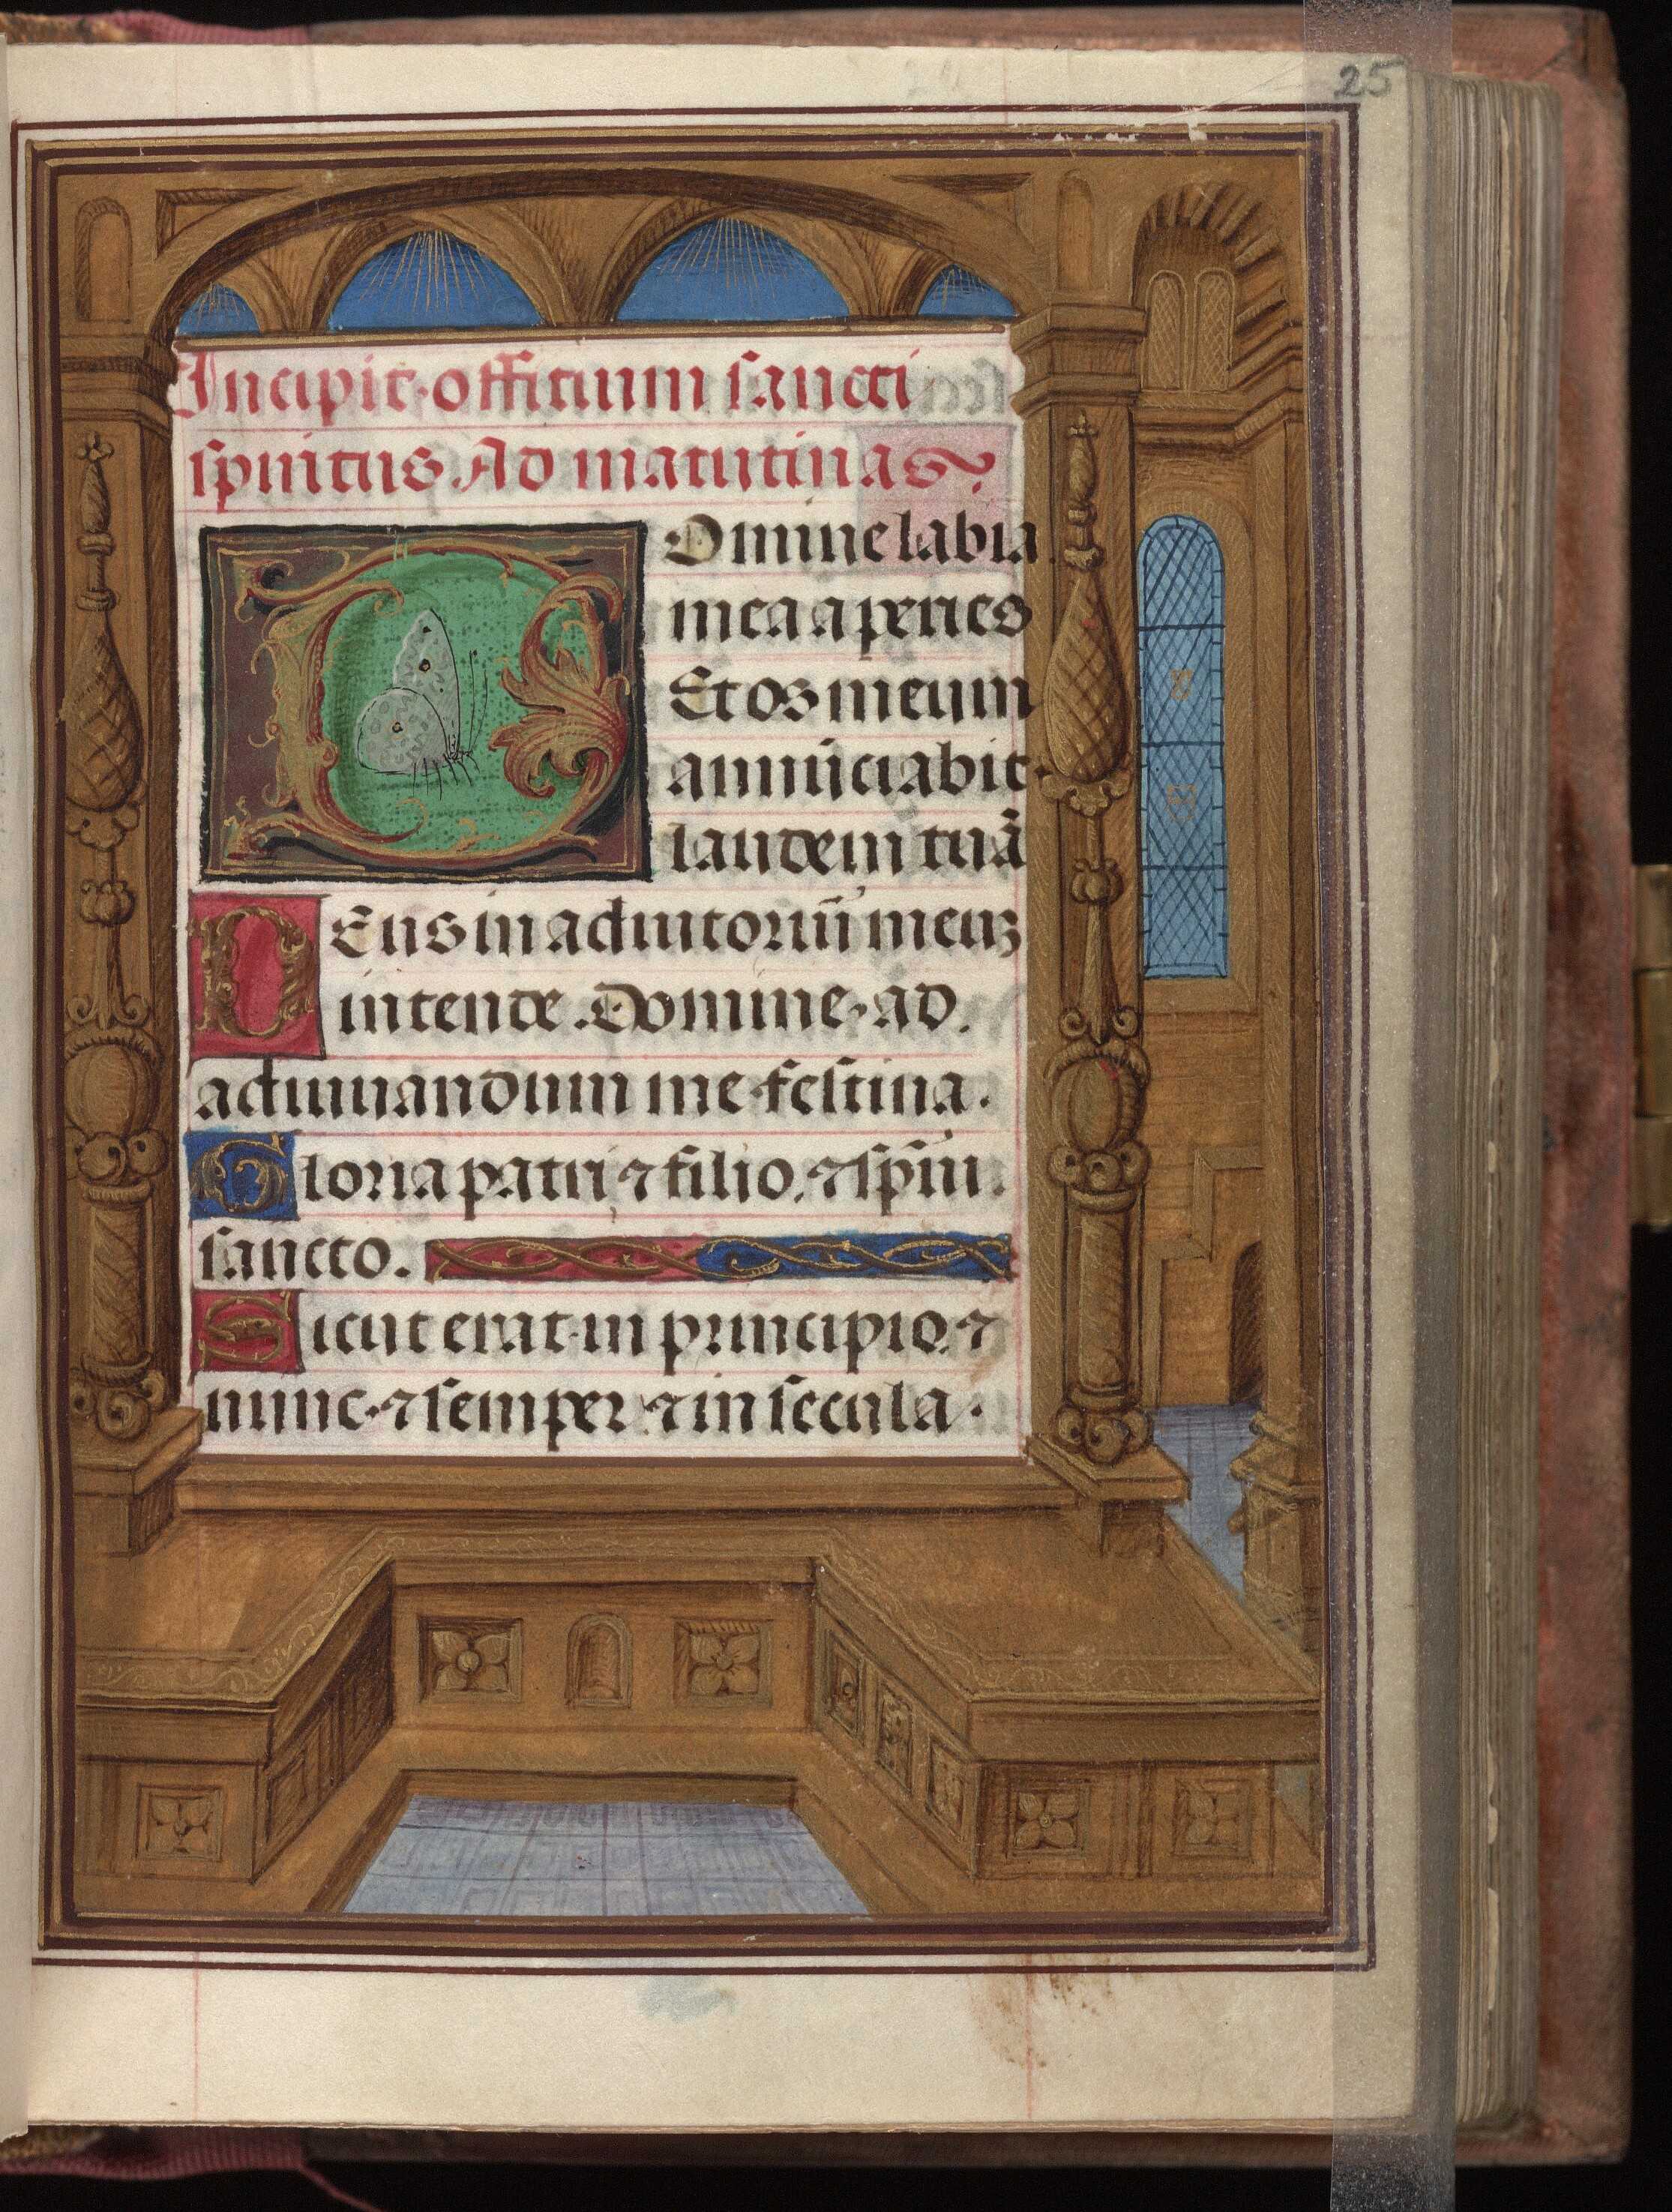 25
Incipit officium sancti
spiritus. Ad matutinas.
Domine labia
mea aperies
Et os meum
annūciabit
laudem tuā
Deus in adiutoriū meuz
intende. Domine ad
adiuuandum me festina.
Gloria patri ⁊ filio. ⁊ sp̄ui
sancto.
Sicut erat in principio. ⁊
nunc ⁊ semper ⁊ in secula.